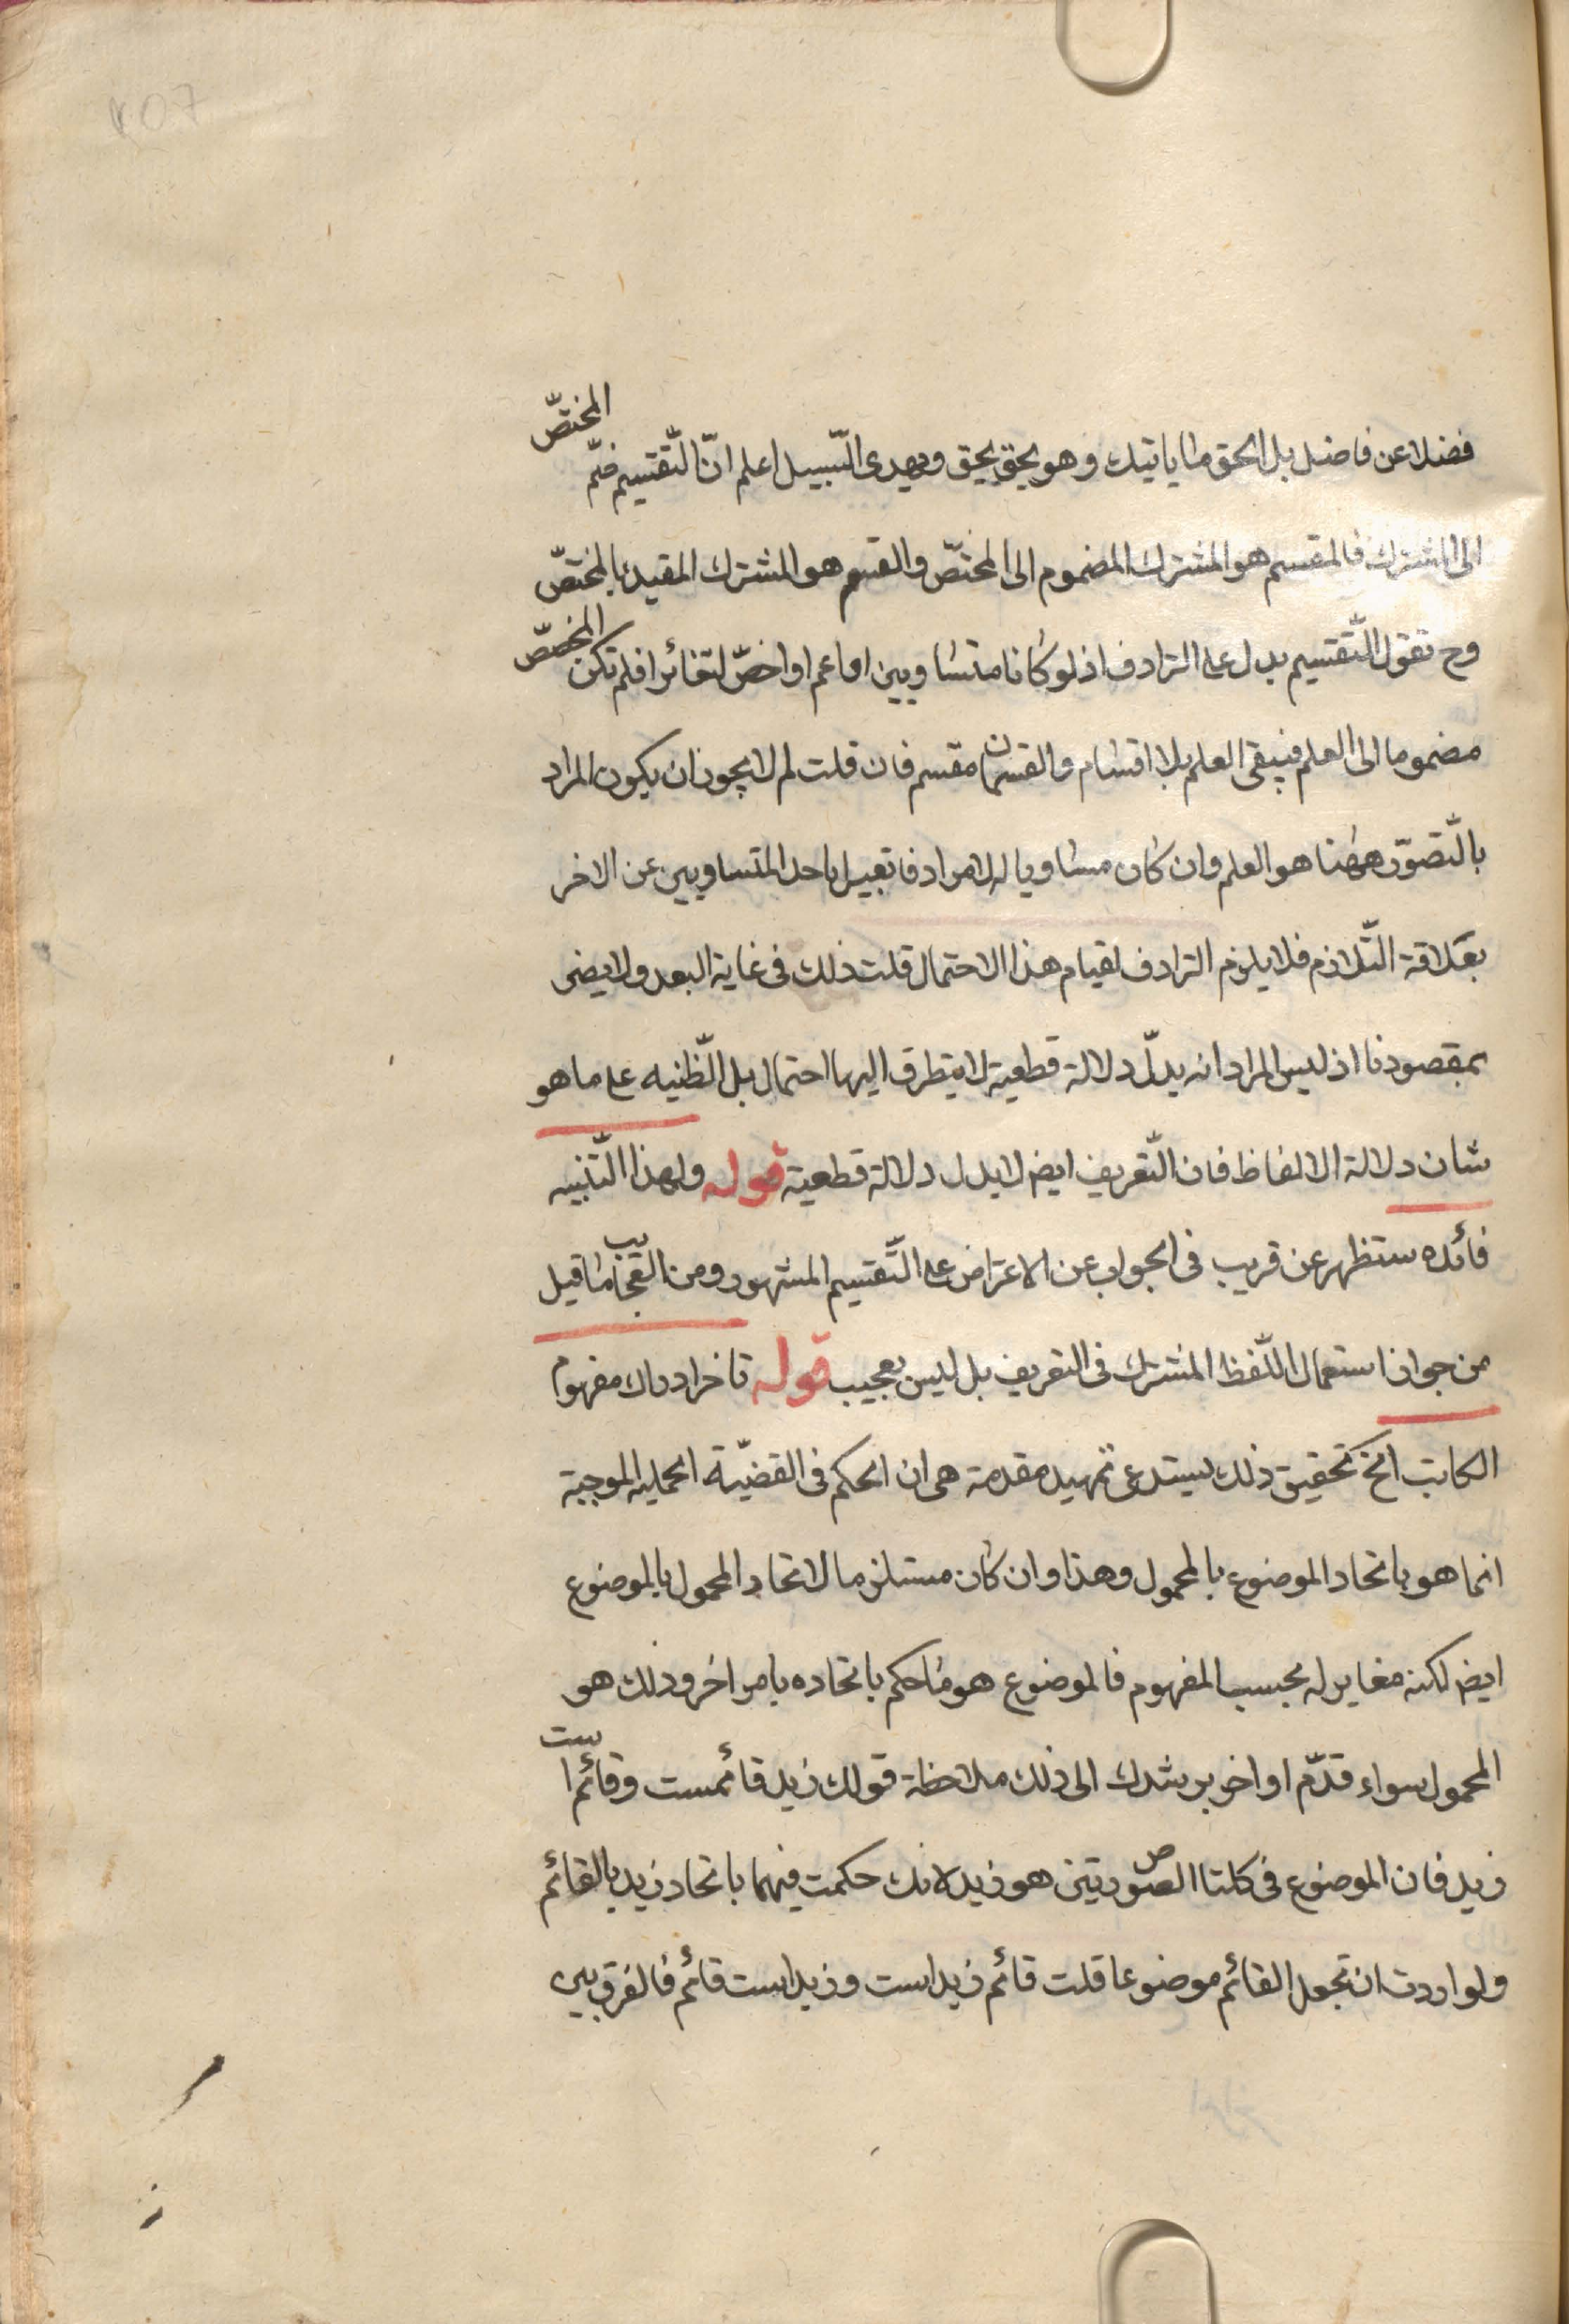 فضلا عن فاضل بل الحق ما ياتيك وهو يحق بحق ويهدى السّبيل اعلم انّ التّقسيم ضمّ المختصّ
الى المشترك فالمقسم هو المشترك المضموم الى المختصّ والقسم هو المشترك المقيد بالمختصّ
وح نقول التّقسيم يدل على الترادف اذ لو كانا متساويين او اعم او اخصّ لتغائرا فلم تكن المخصّص
مضموما الى العلم فيبقى العلم بلا اقسام والقسمان مقسم فان قلت لم لا يجوز ان يكون المراد
بالتّصوّر ههنا هو العلم وان كان مساويا له لا مرادفا تعبيرا باحد المتساويين عن الاخر
بعلاقة التّلازم فلا يلزم الترادف لقيام هذا الاحتمال قلت ذلك فى غاية البعد ولا يضر
بمقصودنا اذ ليس المراد انه يدلّ دلالة قطعية لا يتطرق اليها احتمال بل الظّنيه على ما هو
شان دلالة الالفاظ فان التّعريف ايض لا يدل دلالة قطعية قوله ولهذا التّنبيه
فائده ستظهر عن قريب فى الجواب عن الاعتراض على التّقسيم المشهور ومن العجايب ما قيل
من جواز استعمال اللّفظ المشترك فى التعريف بل ليس بعجيب قوله تاخر ادراك مفهوم
الكاتب الخ تحقيق ذلك يستدعى تمهيد مقدمة هى ان الحكم فى القضيّة الحمليه الموجبة
انما هو باتحاد الموضوع بالمحمول وهذا وان كان مستلزما لاتحاد المحمول بالموضوع
ايض لكنه مغاير له بحسب المفهوم فالموضوع هو ما حكم باتحاده بامر اخر وذلك هو
المحمول سواء قدّم او اخر يرشدك الى ذلك ملاحظة قولك زيد قائمست وقائم است
زيد فان الموضوع فى كلتا الصورتين هو زيد لانك حكمت فيهما باتحاد زيد بالقائم
ولو اردت ان تجعل القائم موضوعا قلت قائم زيد است وزيد است قائم فالفرق بين